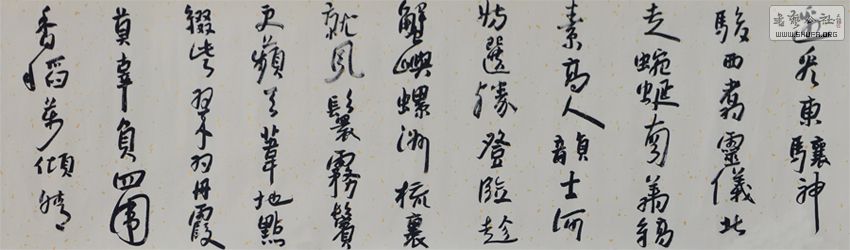 邊看東驤神
駿西翥靈儀北
走蜿蜒南翔縞
素高人韻士何
妨選勝登臨趁
蟹嶼螺洲梳裹
就風鬟霧鬢
更蘋天葦地點
綴些翠羽丹霞
莫辜負四围
香稻萬傾晴
書藝公社
WWW.SHUFA.ORG